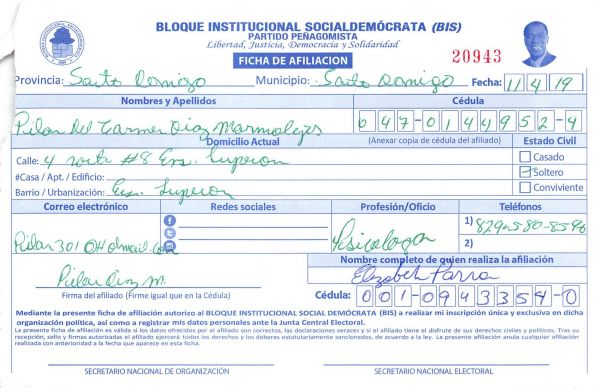 BLOQUE INSTITUCIONAL SOCIALDEMÓCRATA (BIS)
PARTIDO PEÑAGOMISTA
Libertad, Justicia, Democracia y Solidaridad
FICHA DE AFILIACION
20943
Provincia: Santo Domingo Municipio: Santo Domingo Fecha: 11/4/19
Nombres y Apellidos Cédula
Pilar Del Carmen Diaz Marmolejos 047-0144952-4
Domicilio Actual (Anexar copia de cédula del afiliado) Estado Civil
Calle: 4 norte #8 Ens. Luperon Casado
#Casa / Apt. / Edificio: Soltero
Barrio / Urbanización: Ens. Luperon Conviviente
Correo electrónico Redes sociales Profesión/Oficio Teléfonos
Pilar3010Hotmail.com Psicologa 1) 829-580-8596
2)
Nombre completo de quien realiza la afiliación
Pilar Diaz M. Elizabeth Parra
Firma del afiliado (Firme igual que en la Cédula) Cédula: 001-0943354-0
Mediante la presente ficha de afiliación autorizo al BLOQUE INSTITUCIONAL SOCIAL DEMÓCRATA (BIS) a realizar mi inscripción única y exclusiva en dicha
organización política, así como a registrar mis datos personales ante la Junta Central Electoral.
La presente ficha de afiliación es válida si los datos ofrecidos por el afiliado son correctos, las declaraciones veraces y si el afiliado tiene el disfrute de sus derechos civiles y políticos. Tras su
recepción, sello y firmas autorizadas el afiliado ejercerá todos los derechos y los deberes estatutariamente sancionados, de acuerdo a la ley. La presente afiliación anula cualquier afiliación
realizada con anterioridad a la fecha que aparece en esta ficha.
SECRETARIO NACIONAL DE ORGANIZACIÓN SECRETARIO NACIONAL ELECTORAL